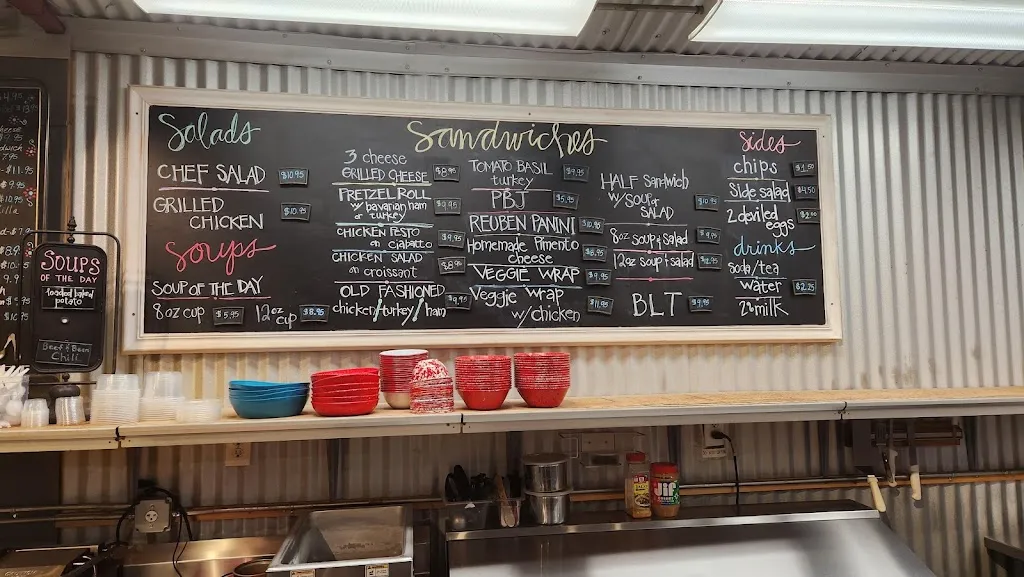 Salads
CHEF SALAD $10.95
GRILLED
CHICKEN $10.95
Soups
SOUP OF THE DAY
8oz cup $5.95 12oz cup $8.95
Sandwiches
3 cheese
GRILLED CHEESE $8.95
PRETZEL ROLL
w/ bavarian ham
or turkey $9.95
CHICKEN PESTO
on ciabatta $9.95
CHICKEN SALAD
on croissant $8.95
OLD FASHIONED
chicken/turkey/ham $9.95
TOMATO BASIL
turkey $9.95
PBJ $5.95
REUBEN PANINI $10.95
Homemade Pimento
cheese $8.95
VEGGIE WRAP $9.95
Veggie wrap
w/chicken $11.95
HALF Sandwich
w/ SOUP or
SALAD $10.95
8oz soup & salad $9.95
12oz soup & salad
BLT $9.95
Sides
chips $1.50
Side salad $4.50
2 deviled
eggs $2.00
drinks
soda/tea
water $2.25
2% milk
SOUPS
OF THE DAY
loaded baked
potato
Beef & Bean
Chili
Jif